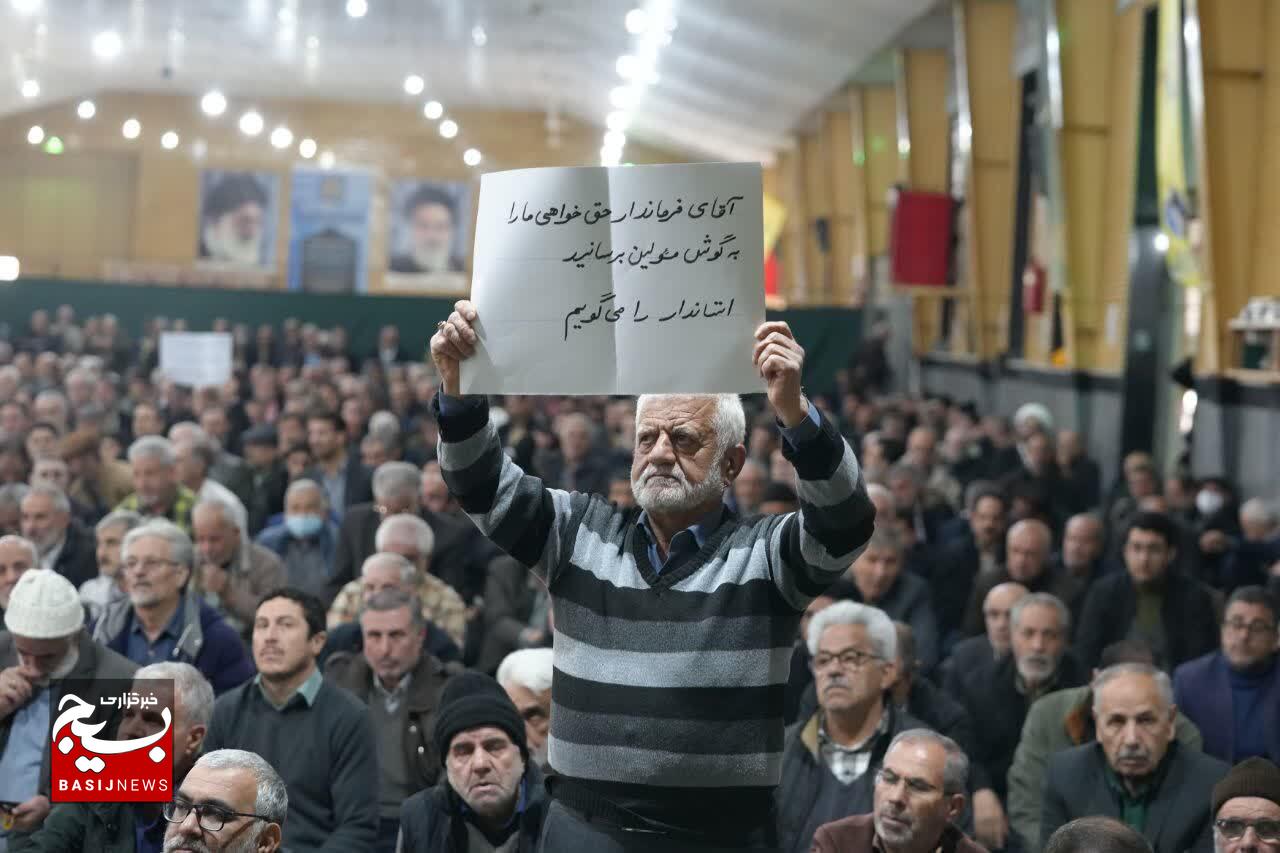 آقای فرماندار حق خواهی ما را
به گوش مسئولین برسانید
استاندار را می‌گویم
خبرگزاری
بسیج
BASIJNEWS